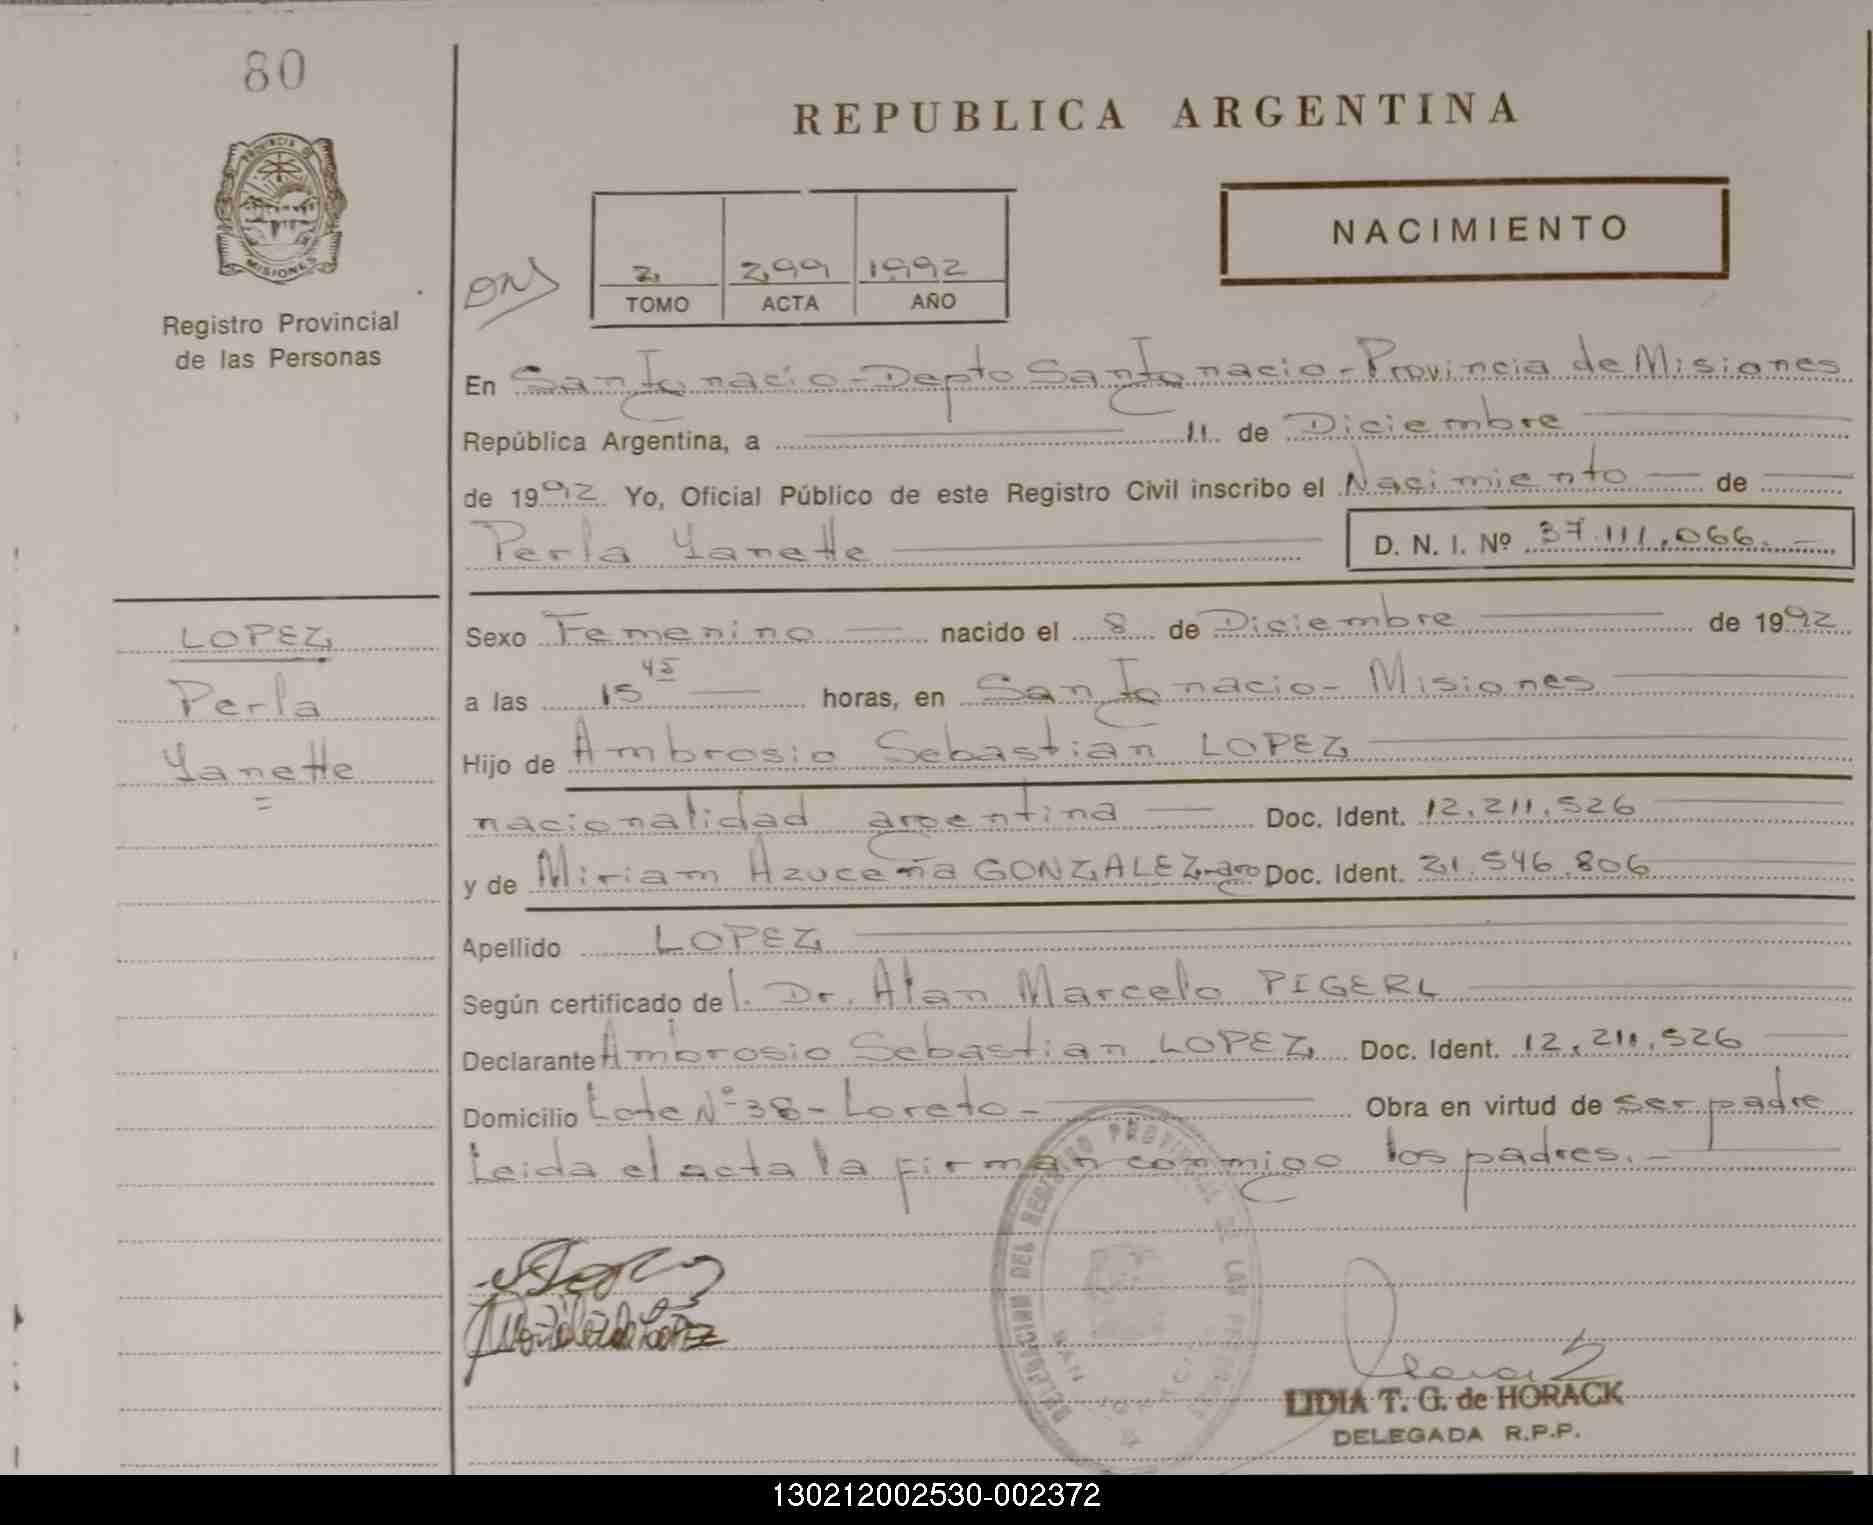 80
PROVINCIA DE
MISIONES
Registro Provincial
de las Personas
LOPEZ
Perla
Yanette
=
REPUBLICA ARGENTINA
NACIMIENTO
2 299 1992
TOMO ACTA AÑO
En San Ignacio - Depto San Ignacio - Provincia de Misiones
República Argentina, a 11 de Diciembre
de 1992 Yo, Oficial Público de este Registro Civil inscribo el Nacimiento de
Perla Yanette D. N. I. Nº 37.111.066.-
Sexo Femenino nacido el 8 de Diciembre de 1992
a las 15 45 horas, en San Ignacio - Misiones
Hijo de Ambrosio Sebastian LOPEZ
nacionalidad argentina Doc. Ident. 12.211.526
y de Miriam Azucena GONZALEZ-arg Doc. Ident. 21.546.806
Apellido LOPEZ
Según certificado del. Dr. Alan Marcelo PIGERL
Declarante Ambrosio Sebastian LOPEZ Doc. Ident. 12.211.526
Domicilio Lote Nº 38 - Loreto - Obra en virtud de ser padre
Leida el acta la firman conmigo los padres.-
DELEGACION DEL REGISTRO PROVINCIAL DE LAS PERSONAS
SAN IGNACIO
LIDIA T. G. de HORACK
DELEGADA R.P.P.
130212002530-002372